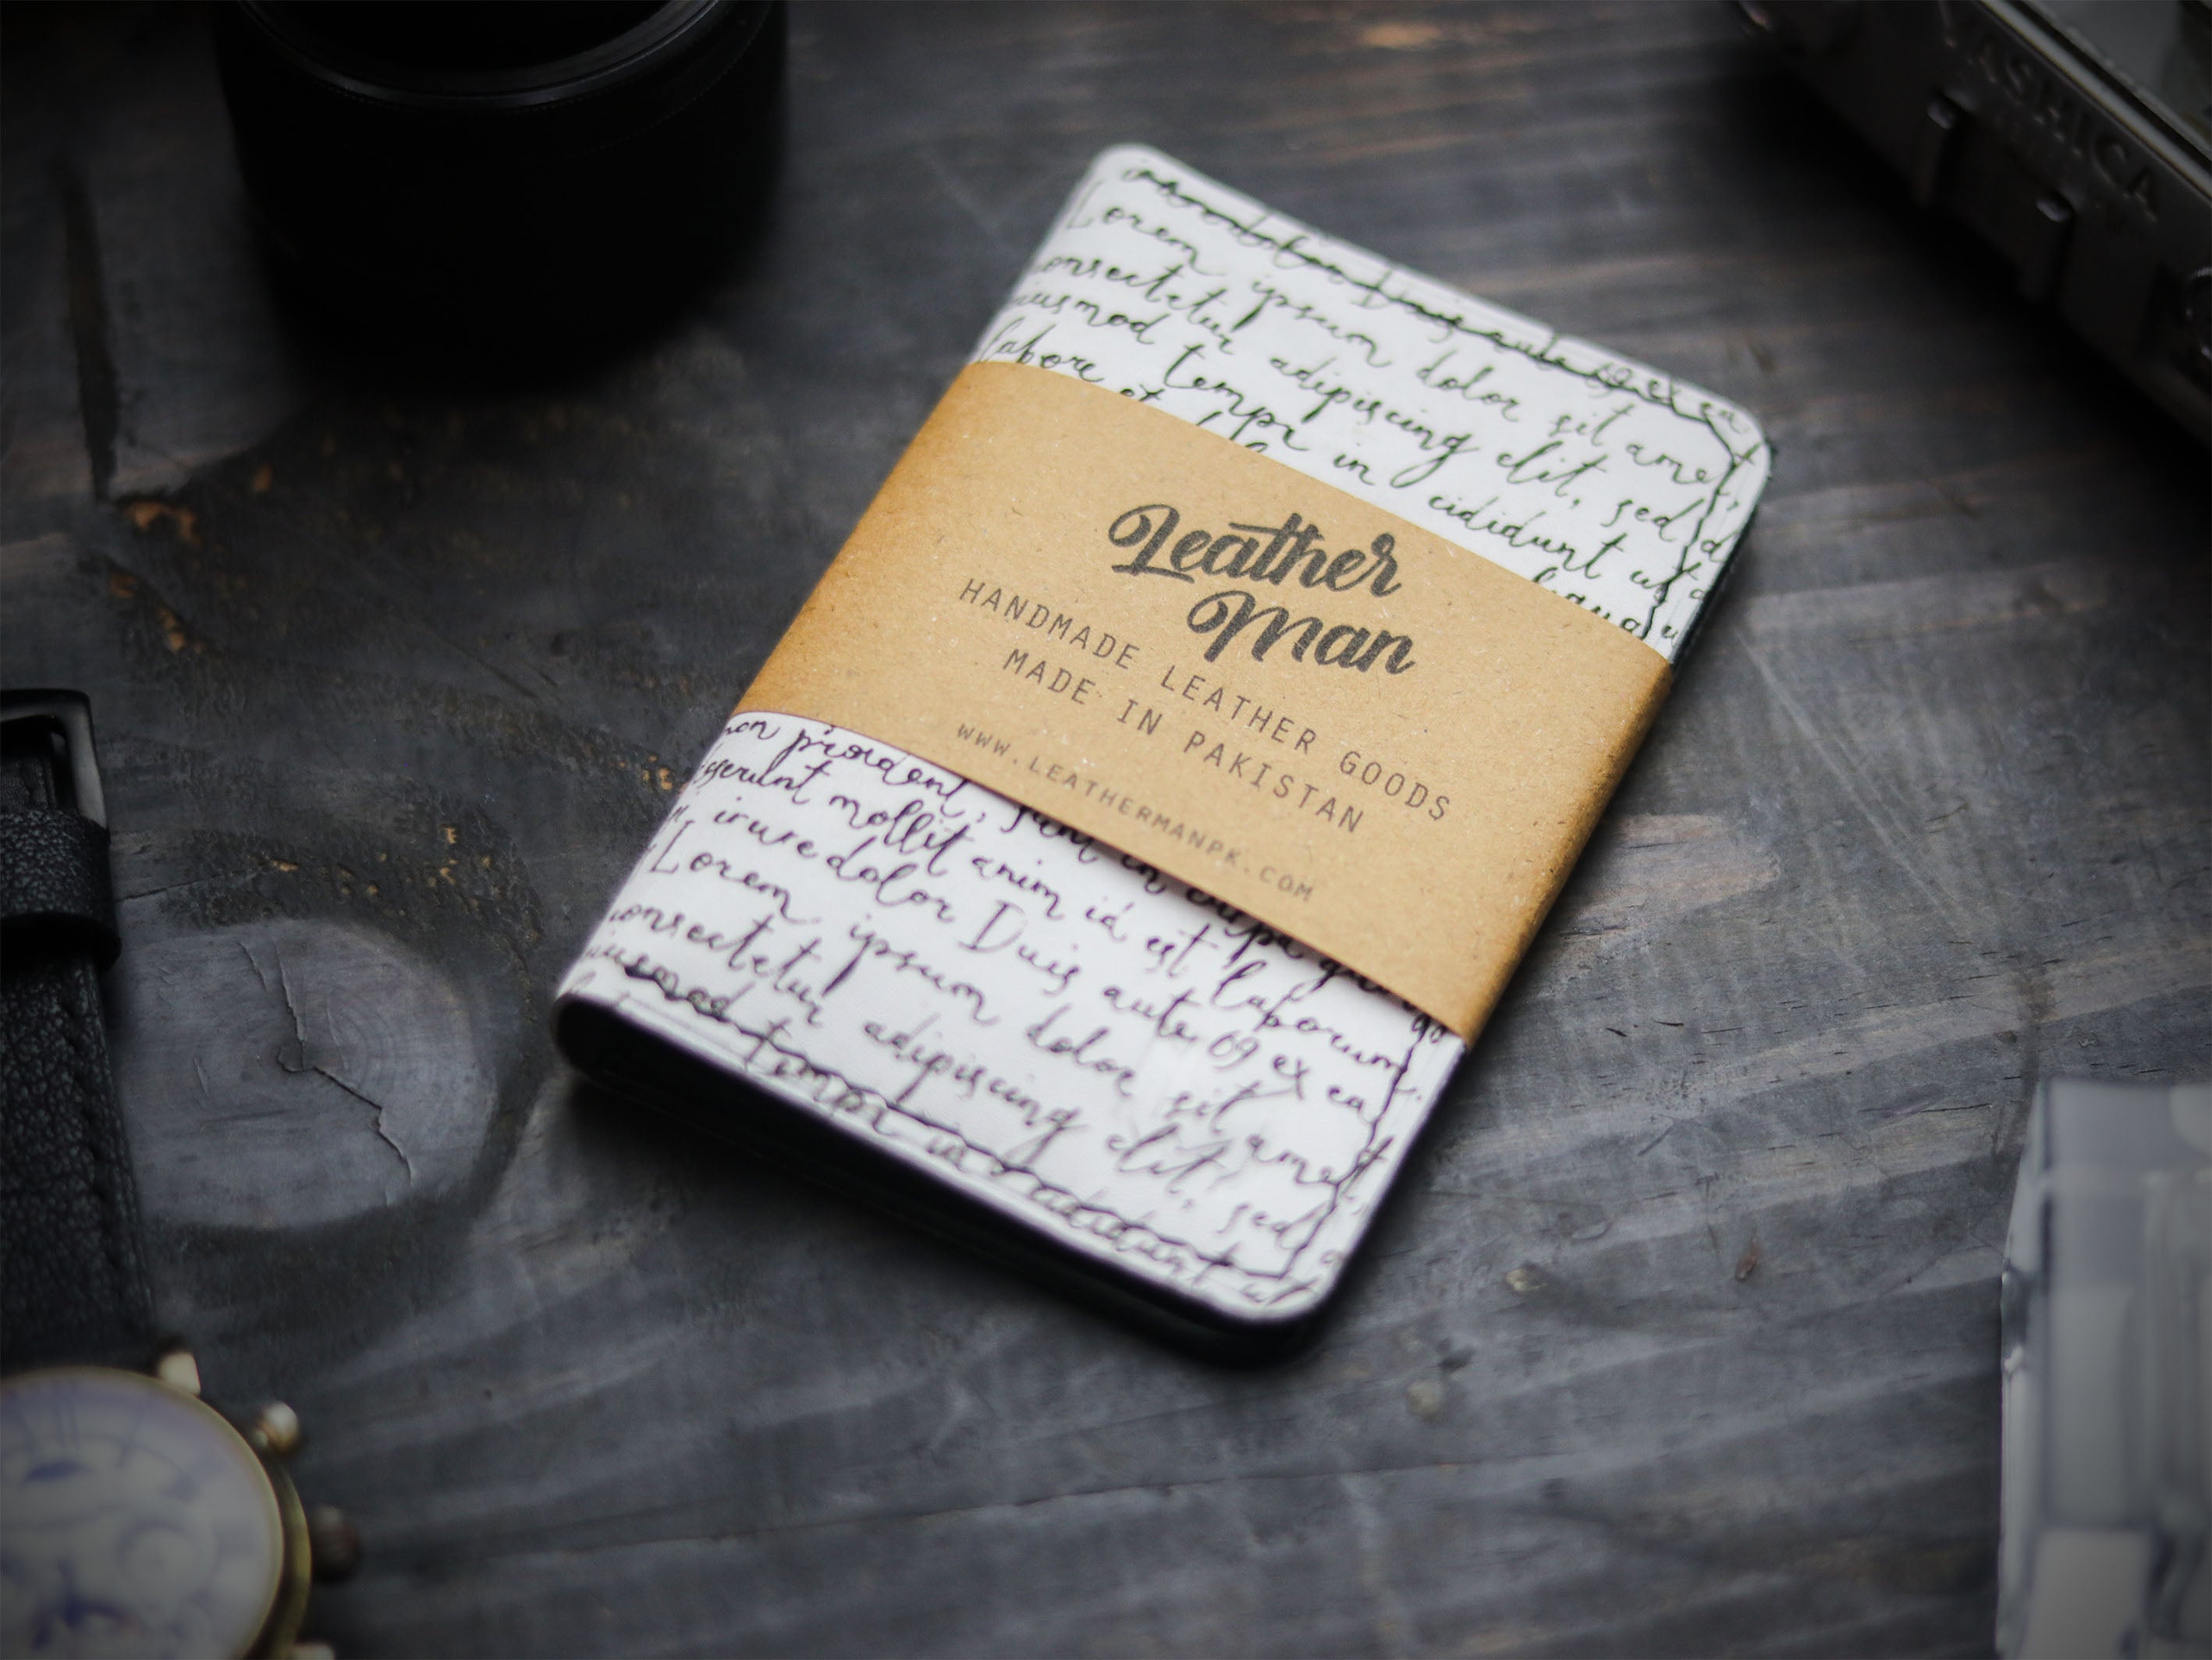 YASHICA
commodo Duis aute 09 ex ea
Lorem ipsum dolor sit amet,
consectetur adipiscing elit, sed d
eiusmod tempr in cididunt ut
labore et
Leather
Man
HANDMADE LEATHER GOODS
MADE IN PAKISTAN
www.LEATHERMANPK.COM
non proident, sunt in culpa
mollit anim id est laborum.
irure dolor Duis aute 09 ex ea
Lorem ipsum dolor sit amet
consectetur adipiscing elit, sed
eiusmod tempr in cididunt ut